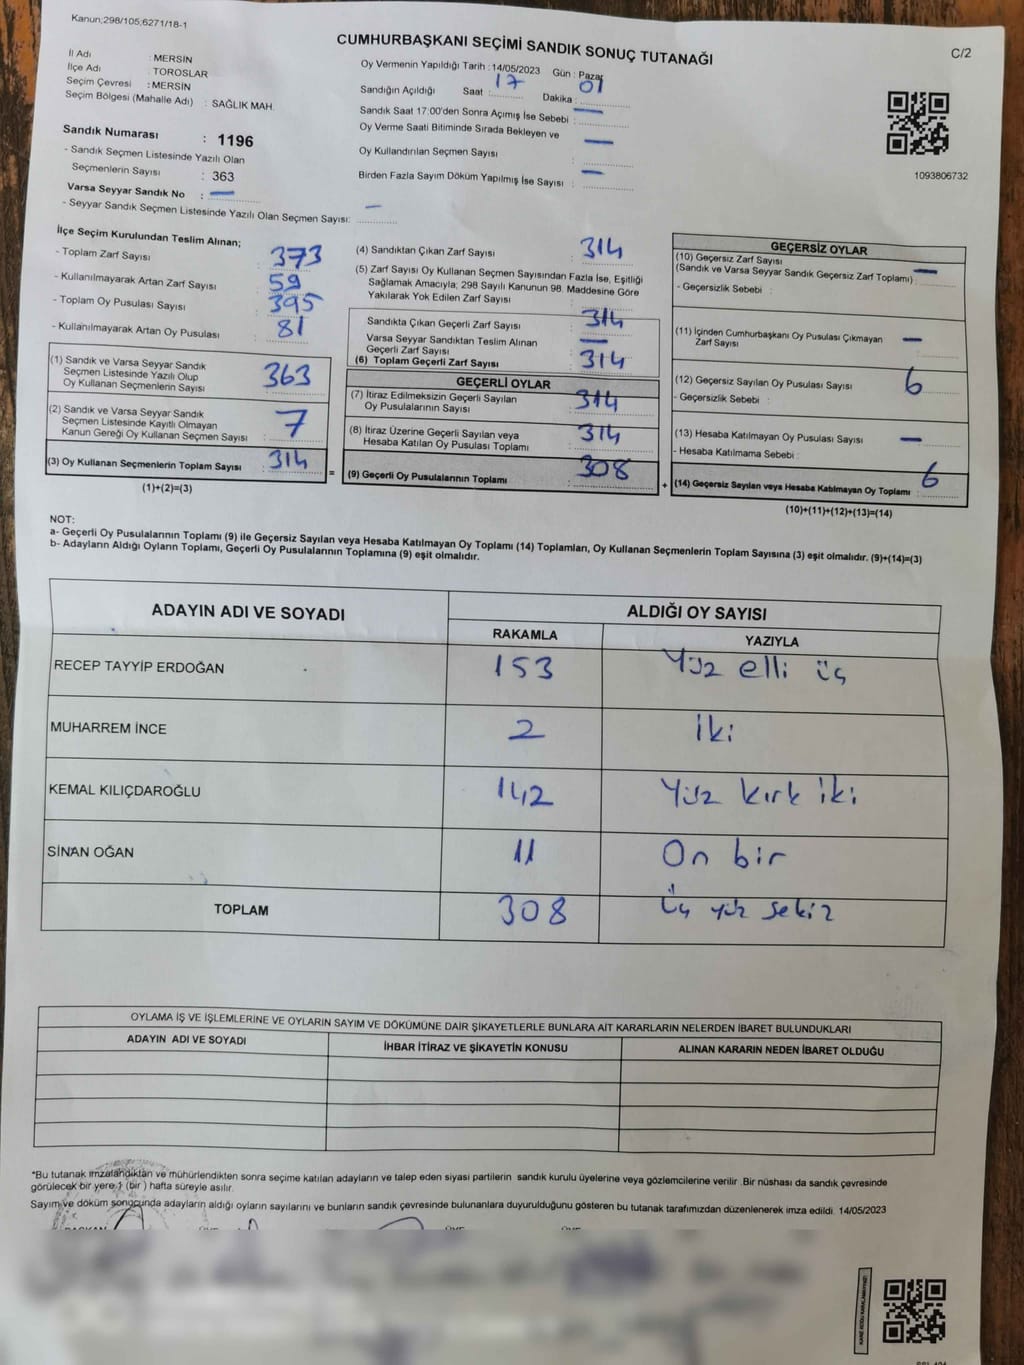 Kanun;298/105;6271/18-1
C/2
CUMHURBAŞKANI SEÇİMİ SANDIK SONUÇ TUTANAĞI
İl Adı : MERSİN
İlçe Adı : TOROSLAR
Seçim Çevresi : MERSİN
Seçim Bölgesi (Mahalle Adı) : SAĞLIK MAH.
Sandık Numarası : 1196
- Sandık Seçmen Listesinde Yazılı Olan
Seçmenlerin Sayısı : 363
Varsa Seyyar Sandık No : —
- Seyyar Sandık Seçmen Listesinde Yazılı Olan Seçmen Sayısı: —
Oy Vermenin Yapıldığı Tarih : 14/05/2023 Gün : Pazar
Sandığın Açıldığı Saat : 17 Dakika : 01
Sandık Saat 17:00'den Sonra Açımış İse Sebebi : —
Oy Verme Saati Bitiminde Sırada Bekleyen ve
Oy Kullandırılan Seçmen Sayısı : —
Birden Fazla Sayım Döküm Yapılmış İse Sayısı : —
1093806732
İlçe Seçim Kurulundan Teslim Alınan;
- Toplam Zarf Sayısı : 373
- Kullanılmayarak Artan Zarf Sayısı : 59
- Toplam Oy Pusulası Sayısı : 395
- Kullanılmayarak Artan Oy Pusulası : 81
(1) Sandık ve Varsa Seyyar Sandık
Seçmen Listesinde Yazılı Olup
Oy Kullanan Seçmenlerin Sayısı : 363
(2) Sandık ve Varsa Seyyar Sandık
Seçmen Listesinde Kayıtlı Olmayan
Kanun Gereği Oy Kullanan Seçmen Sayısı : 7
(3) Oy Kullanan Seçmenlerin Toplam Sayısı : 314
(1)+(2)=(3)
=
(4) Sandıktan Çıkan Zarf Sayısı : 314
(5) Zarf Sayısı Oy Kullanan Seçmen Sayısından Fazla İse, Eşitliği
Sağlamak Amacıyla; 298 Sayılı Kanunun 98. Maddesine Göre
Yakılarak Yok Edilen Zarf Sayısı :
Sandıkta Çıkan Geçerli Zarf Sayısı : 314
Varsa Seyyar Sandıktan Teslim Alınan
Geçerli Zarf Sayısı : —
(6) Toplam Geçerli Zarf Sayısı : 314
GEÇERLİ OYLAR
(7) İtiraz Edilmeksizin Geçerli Sayılan
Oy Pusulalarının Sayısı : 314
(8) İtiraz Üzerine Geçerli Sayılan veya
Hesaba Katılan Oy Pusulaları Toplamı : 314
(9) Geçerli Oy Pusulalarının Toplamı : 308
+
GEÇERSİZ OYLAR
(10) Geçersiz Zarf Sayısı
(Sandık ve Varsa Seyyar Sandık Geçersiz Zarf Toplamı) : —
- Geçersizlik Sebebi :
(11) İçinden Cumhurbaşkanı Oy Pusulası Çıkmayan
Zarf Sayısı : —
(12) Geçersiz Sayılan Oy Pusulası Sayısı : 6
- Geçersizlik Sebebi :
(13) Hesaba Katılmayan Oy Pusulası Sayısı : —
- Hesaba Katılmama Sebebi :
(14) Geçersiz Sayılan veya Hesaba Katılmayan Oy Toplamı : 6
(10)+(11)+(12)+(13)=(14)
NOT:
a- Geçerli Oy Pusulalarının Toplamı (9) ile Geçersiz Sayılan veya Hesaba Katılmayan Oy Toplamı (14) Toplamları, Oy Kullanan Seçmenlerin Toplam Sayısına (3) eşit olmalıdır. (9)+(14)=(3)
b- Adayların Aldığı Oyların Toplamı, Geçerli Oy Pusulalarının Toplamına (9) eşit olmalıdır.
ADAYIN ADI VE SOYADI ALDIĞI OY SAYISI
RAKAMLA YAZIYLA
RECEP TAYYİP ERDOĞAN 153 Yüz elli üç
MUHARREM İNCE 2 İki
KEMAL KILIÇDAROĞLU 142 Yüz kırk iki
SİNAN OĞAN 11 On bir
TOPLAM 308 Üç yüz sekiz
OYLAMA İŞ VE İŞLEMLERİNE VE OYLARIN SAYIM VE DÖKÜMÜNE DAİR ŞİKAYETLERLE BUNLARA AİT KARARLARIN NELERDEN İBARET BULUNDUKLARI
ADAYIN ADI VE SOYADI İHBAR İTİRAZ VE ŞİKAYETİN KONUSU ALINAN KARARIN NEDEN İBARET OLDUĞU
*Bu tutanak imzalandıktan ve mühürlendikten sonra seçime katılan adayların ve talep eden siyasi partilerin sandık kurulu üyelerine veya gözlemcilerine verilir. Bir nüshası da sandık çevresinde
görülecek bir yere 1 (bir ) hafta süreyle asılır.
Sayım ve döküm sonucunda adayların aldığı oyların sayılarını ve bunların sandık çevresinde bulunanlara duyurulduğunu gösteren bu tutanak tarafımızdan düzenlenerek imza edildi. 14/05/2023